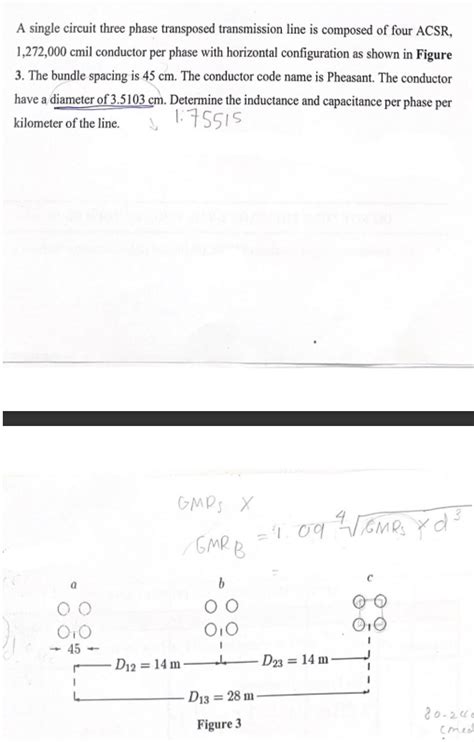 A single circuit three phase transposed transmission line is composed of four ACSR,
1,272,000 cmil conductor per phase with horizontal configuration as shown in Figure
3. The bundle spacing is 45 cm. The conductor code name is Pheasant. The conductor
have a diameter of 3.5103 cm. Determine the inductance and capacitance per phase per
kilometer of the line.
1.75515
GMRs X
GMR B = 1.09 4√GMRs x d³
a b c
45
D12 = 14 m D23 = 14 m
D13 = 28 m
Figure 3